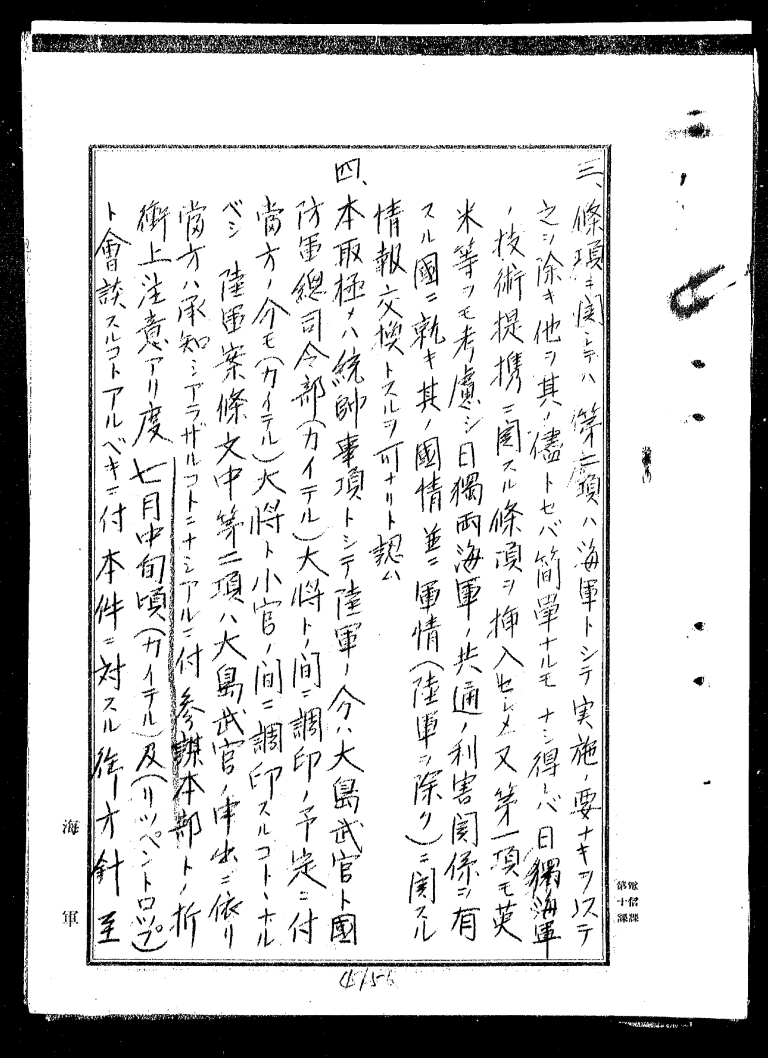 三、條項ニ関シテハ 第二項ハ海軍トシテ実施ノ要ナキヲ以テ
之ヲ除キ他ヲ其ノ儘トセバ簡単ナルモ ナシ得レバ日獨海軍
ノ技術提携ニ関スル條項ヲ挿入セシメ又第一項モ英
米等ヲモ考慮シ日獨両海軍ノ共通ノ利害関係ヲ有
スル國ニ就キ其ノ國情並ニ軍情(陸軍ヲ除ク)ニ関スル
情報交換トスルヲ可ナリト認ム
四、本取極メハ統帥事項トシテ陸軍ノ分ハ大島武官ト國
防軍總司令部(カイテル)大将トノ間ニ調印ノ予定ニ付
當方ノ分モ(カイテル)大将ト小官ノ間ニ調印スルコトトナル
ベシ 陸軍案條文中第二項ハ大島武官ノ申出ニ依リ
當方ハ承知シアラザルコトニナシアルニ付参謀本部トノ折
衝上注意アリ度 七月中旬頃(カイテル)及(リツペントロツプ)
ト會談スルコトアルベキニ付本件ニ対スル御方針至
海軍
電信課
第十課